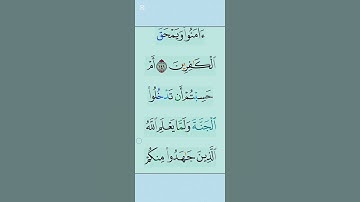 ءَامَنُوا۟ وَيَمْحَقَ
ٱلْكَـٰفِرِينَ ١٤١ أَمْ
حَسِبْتُمْ أَن تَدْخُلُوا۟
ٱلْجَنَّةَ وَلَمَّا يَعْلَمِ ٱللَّهُ
ٱلَّذِينَ جَـٰهَدُوا۟ مِنكُمْ